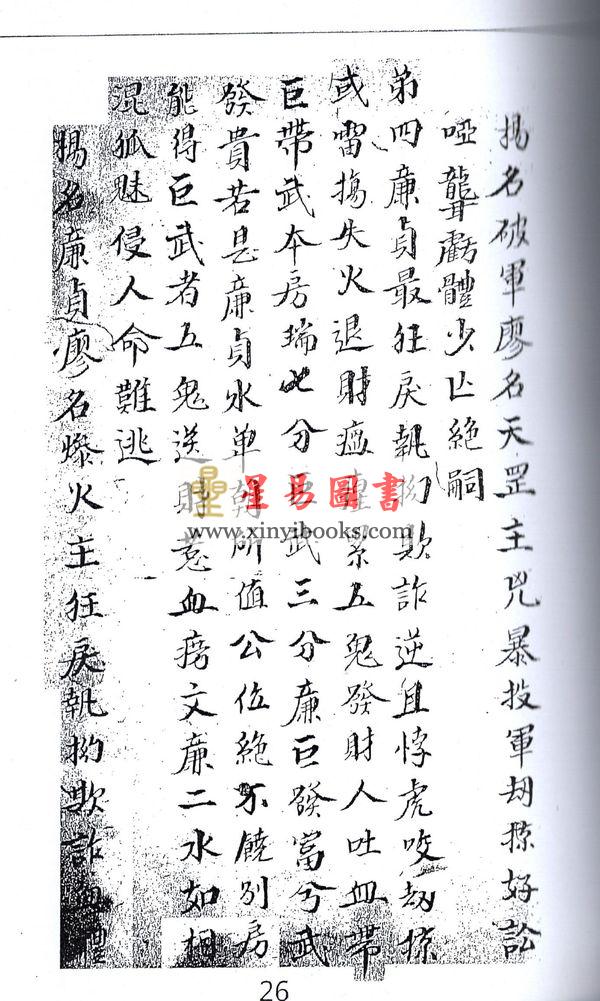 揚名破軍廖名天罡主兇暴投軍劫掠好訟
啞聾虧體少亡絕嗣
第四廉貞最狂戾執拗欺詐逆且悖虎咬劫掠
或雷撝失火退財瘟瘽累五鬼發財人吐血帶
巨帶武本房瑞七分巨武三分廉巨發富兮武
發貴若是廉貞水單朝所值公位絕不饒別房
能得巨武者五鬼送財惹血癆文廉二水如相
混狐魅侵人命難逃
揚名廉貞廖名燥火主狂戾執拗欺詐血
星易圖書
www.xinyibooks.com
26